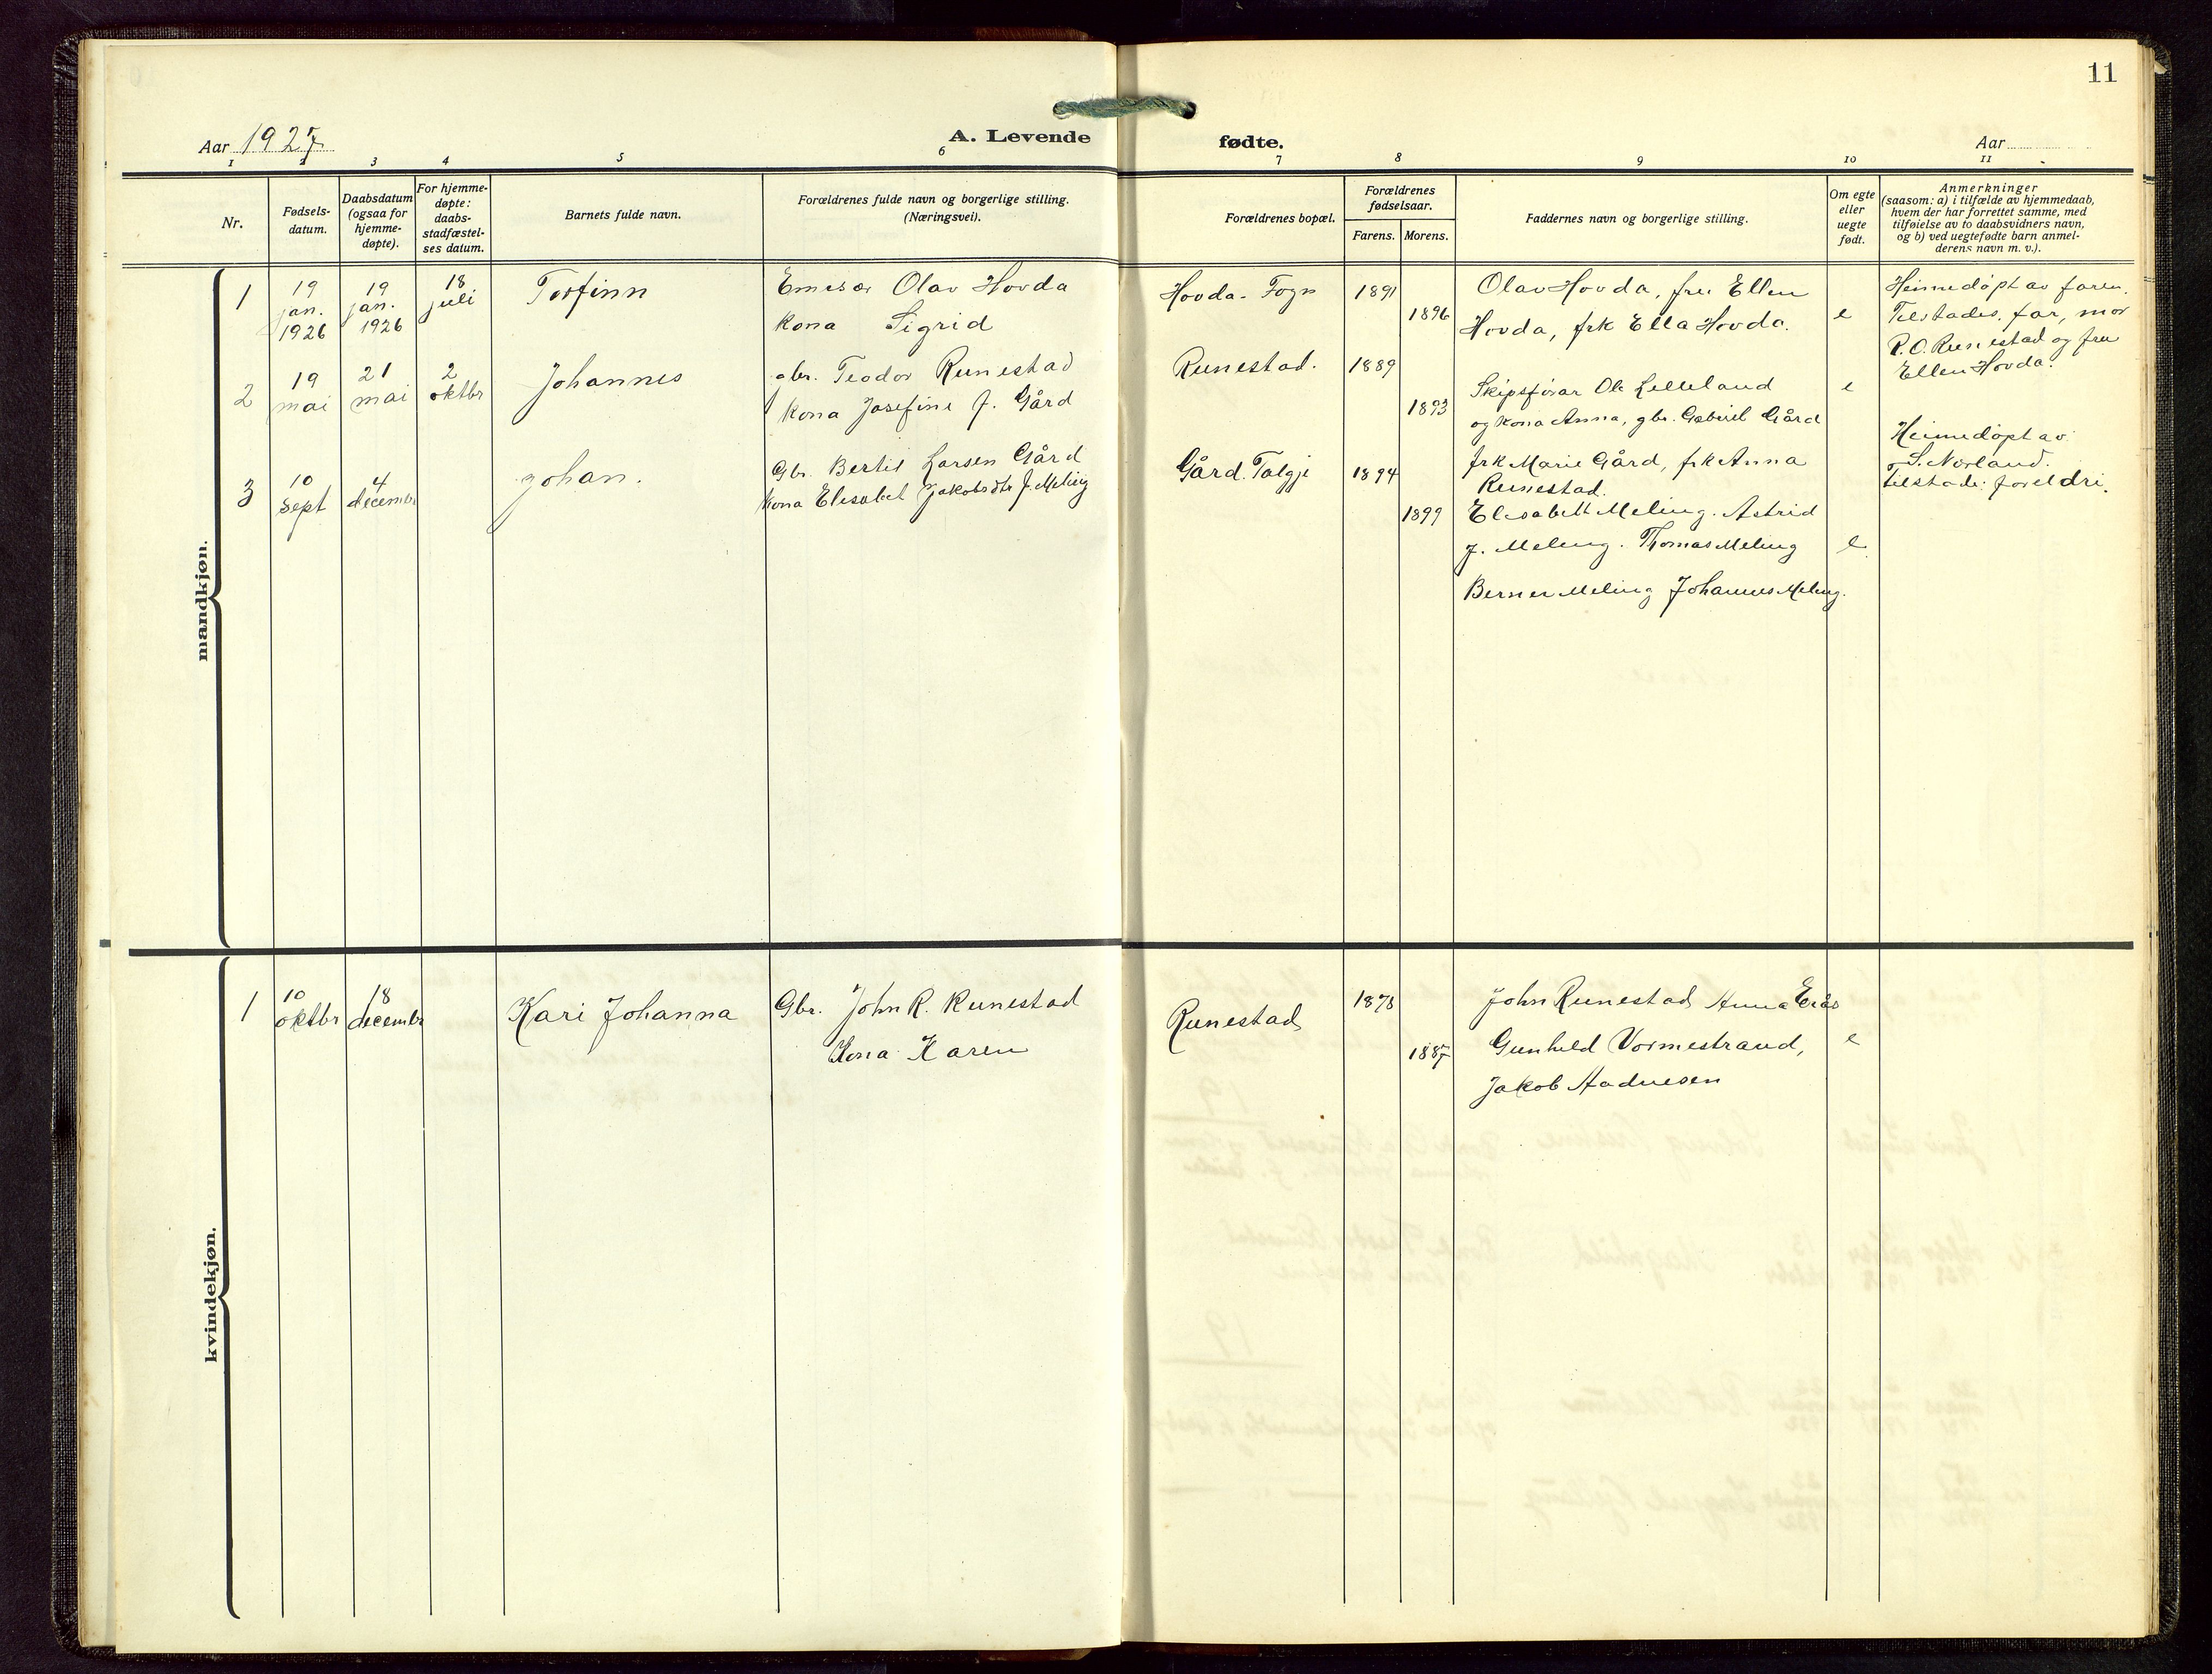 11
Aar 1927
A. Levende fødte.
Aar
1 2 3 4 5 6 7 8 9 10 11
Nr.
Fødsels-
datum.
Daabsdatum
(ogsaa for
hjemme-
døpte).
For hjemme-
døpte:
daabs-
stadfæstel-
ses datum.
Barnets fulde navn.
Forældrenes fulde navn og borgerlige stilling.
(Næringsvei).
Forældrenes bopæl.
Forældrenes
fødselsaar.
Farens. Morens.
Faddernes navn og borgerlige stilling.
Om egte
eller
uegte
født.
Anmerkninger
(saasom: a) i tilfælde av hjemmedaab,
hvem der har forrettet samme, med
tilføielse av to daabsvidners navn,
og b) ved uegtefødte barn anmel-
derens navn m. v.).
mandkjøn.
1
19
jan.
1926
19
jan.
1926
18
juli
Torfinn
Emisær Olav Hovda
kona Sigrid
Hovda - Fogn
1891
1896
Olav Hovda, fru Ellen
Hovda, frk Ella Hovda.
e
Heimedöpt av faren.
Tilstades. far, mor
R. O. Runestad og fru
Ellen Hovda.
2
19
mai
21
mai
2
oktbr
Johannes
gbr. Teodor Runestad
kona Josefine f. Gård
Runestad.
1889
1893
Skipsförar Ole Lelleland
og kona Anna, gbr. Gabriel Gård
frk Marie Gård, frk Anna
Runestad.
e
Heimedöpt av
S. Norland.
tilstade: foreldri.
3
10
sept
4
decembr
Johan.
Gbr. Bertil Larsen Gård
kona Elisabet Jakobsdtr f. Meling
Gård. Talgje
1894
1899
Elisabett Meling. Astrid
J. Meling. Thomas Meling
Berner Meling Johannes Meling.
e
kvindekjøn.
1
10
oktbr
18
decembr
Kari Johanna
Gbr. John R. Runestad
Kona Karen
Runestad
1878
1887
John Runestad Anna Erås
Gunhild Vormestrand,
Jakob Aadnesen
e